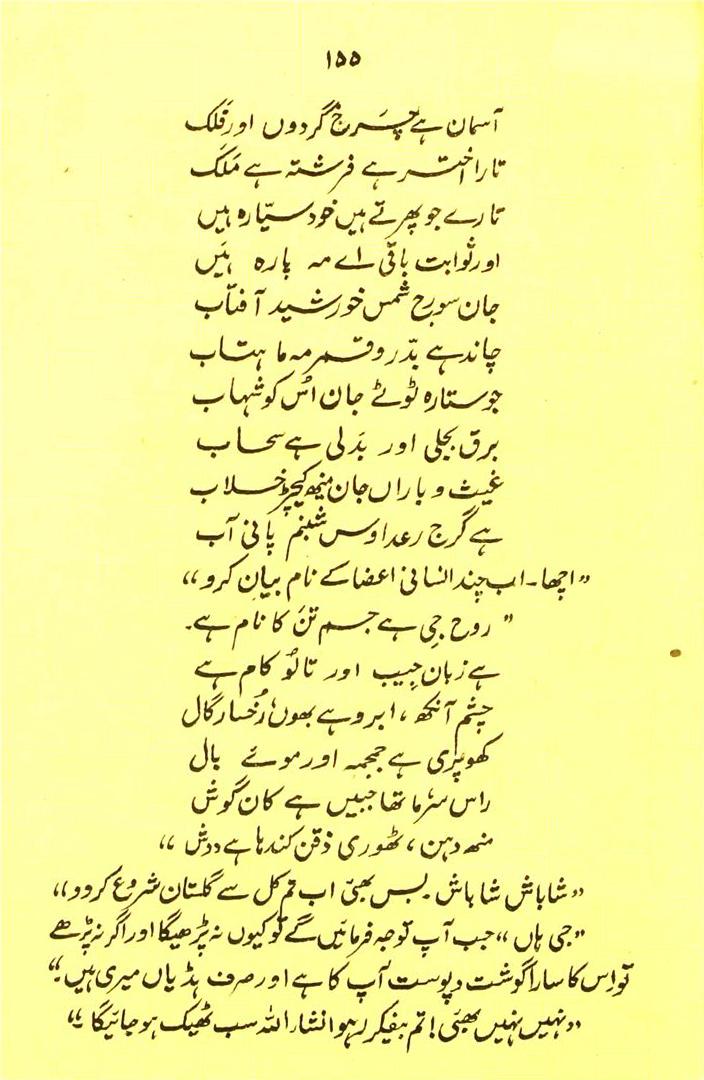 ۱۵۵
آسمان ہے چَرخ گردوں اور فَلک
تارا اختر ہے فرشتہ ہے مَلَک
تارے جو پھرتے ہیں خود سیّارہ ہیں
اور ثوابت باقی اے مہ پارہ ہَیں
جان سورج شمس خورشید آفتاب
چاند ہے بدر و قمر مہ ماہتاب
جو ستارہ ٹوٹے جان اُس کو شہاب
برق بجلی اور بَدلی ہے سحاب
غیث و باراں جان مینھ کیچڑ خلاب
ہے گرج رعد اوس شبنم پانی آب
”اچھا۔ اب چند انسانی اعضا کے نام بیان کرو“
”روح جی ہے جسم تَن کا نام ہے۔
ہے زبان جِیب اور تالُو کام ہے
چشم آنکھ، ابرو ہے بھوں رُخسار گال
کھوپڑی ہے جمجمہ اور موئے بال
راس سر ماتھا جبیں ہے کان گوش
منھ دہن، ٹھوری ذقن کندہا ہے دوش“
”شاباش شاباش۔ بس بھئی اب تم کل سے گلستان شروع کر دو“
”جی ہاں“ جب آپ توجہ فرمائیں گے تو کیوں نہ پڑھیگا اور اگر نہ پڑھے
تو اِس کا سارا گوشت و پوست آپ کا ہے اور صرف ہڈیاں میری ہیں۔“
”نہیں نہیں بھئی! تم بیفکر رہو انشاراللہ سب ٹھیک ہو جائیگا۔“